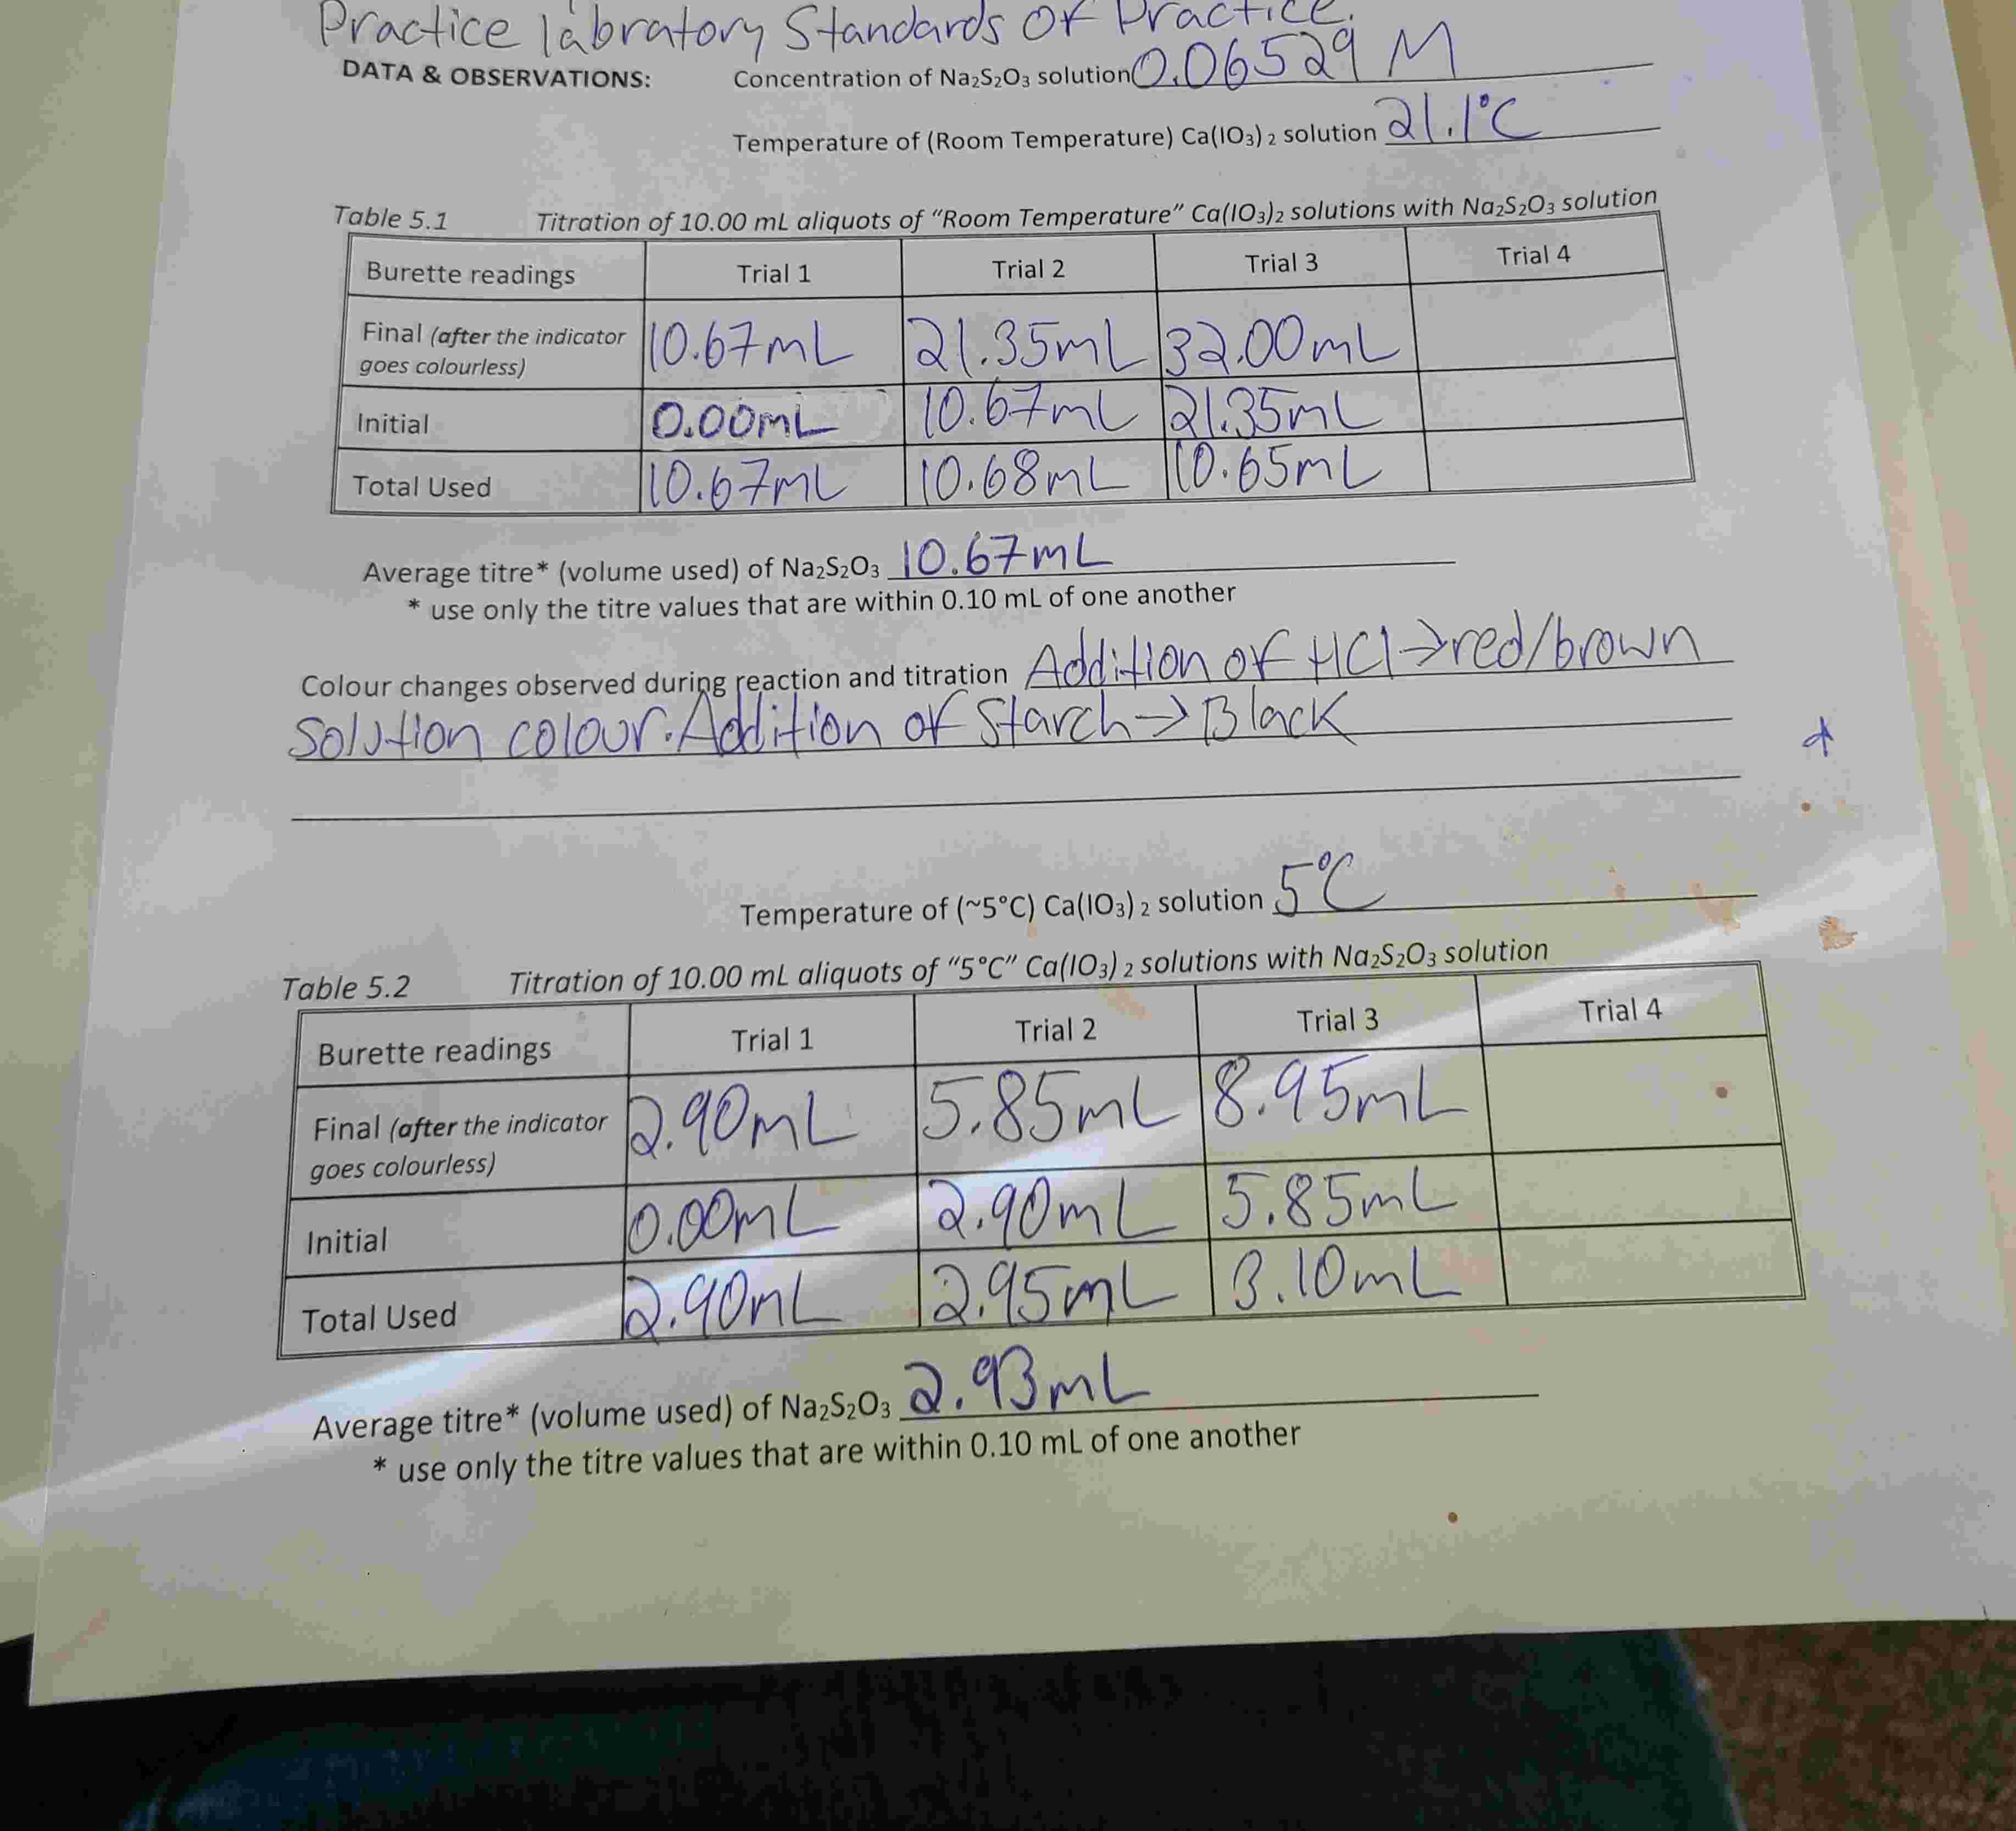 Practice labratory Standards Of Practice.
DATA & OBSERVATIONS: Concentration of Na₂S₂O₃ solution 0.06529 M
Temperature of (Room Temperature) Ca(IO₃)₂ solution 21.1°C
Table 5.1 Titration of 10.00 mL aliquots of “Room Temperature” Ca(IO₃)₂ solutions with Na₂S₂O₃ solution
Burette readings Trial 1 Trial 2 Trial 3 Trial 4
Final (after the indicator goes colourless) 10.67mL 21.35mL 32.00mL
Initial 0.00mL 10.67mL 21.35mL
Total Used 10.67mL 10.68mL 10.65mL
Average titre* (volume used) of Na₂S₂O₃ 10.67mL
* use only the titre values that are within 0.10 mL of one another
Colour changes observed during reaction and titration Addition of HCl→red/brown
Solution colour. Addition of Starch→Black
Temperature of (~5°C) Ca(IO₃)₂ solution 5°C
Table 5.2 Titration of 10.00 mL aliquots of “5°C” Ca(IO₃)₂ solutions with Na₂S₂O₃ solution
Burette readings Trial 1 Trial 2 Trial 3 Trial 4
Final (after the indicator goes colourless) 2.90mL 5.85mL 8.95mL
Initial 0.00mL 2.90mL 5.85mL
Total Used 2.90mL 2.95mL 3.10mL
Average titre* (volume used) of Na₂S₂O₃ 2.93mL
* use only the titre values that are within 0.10 mL of one another